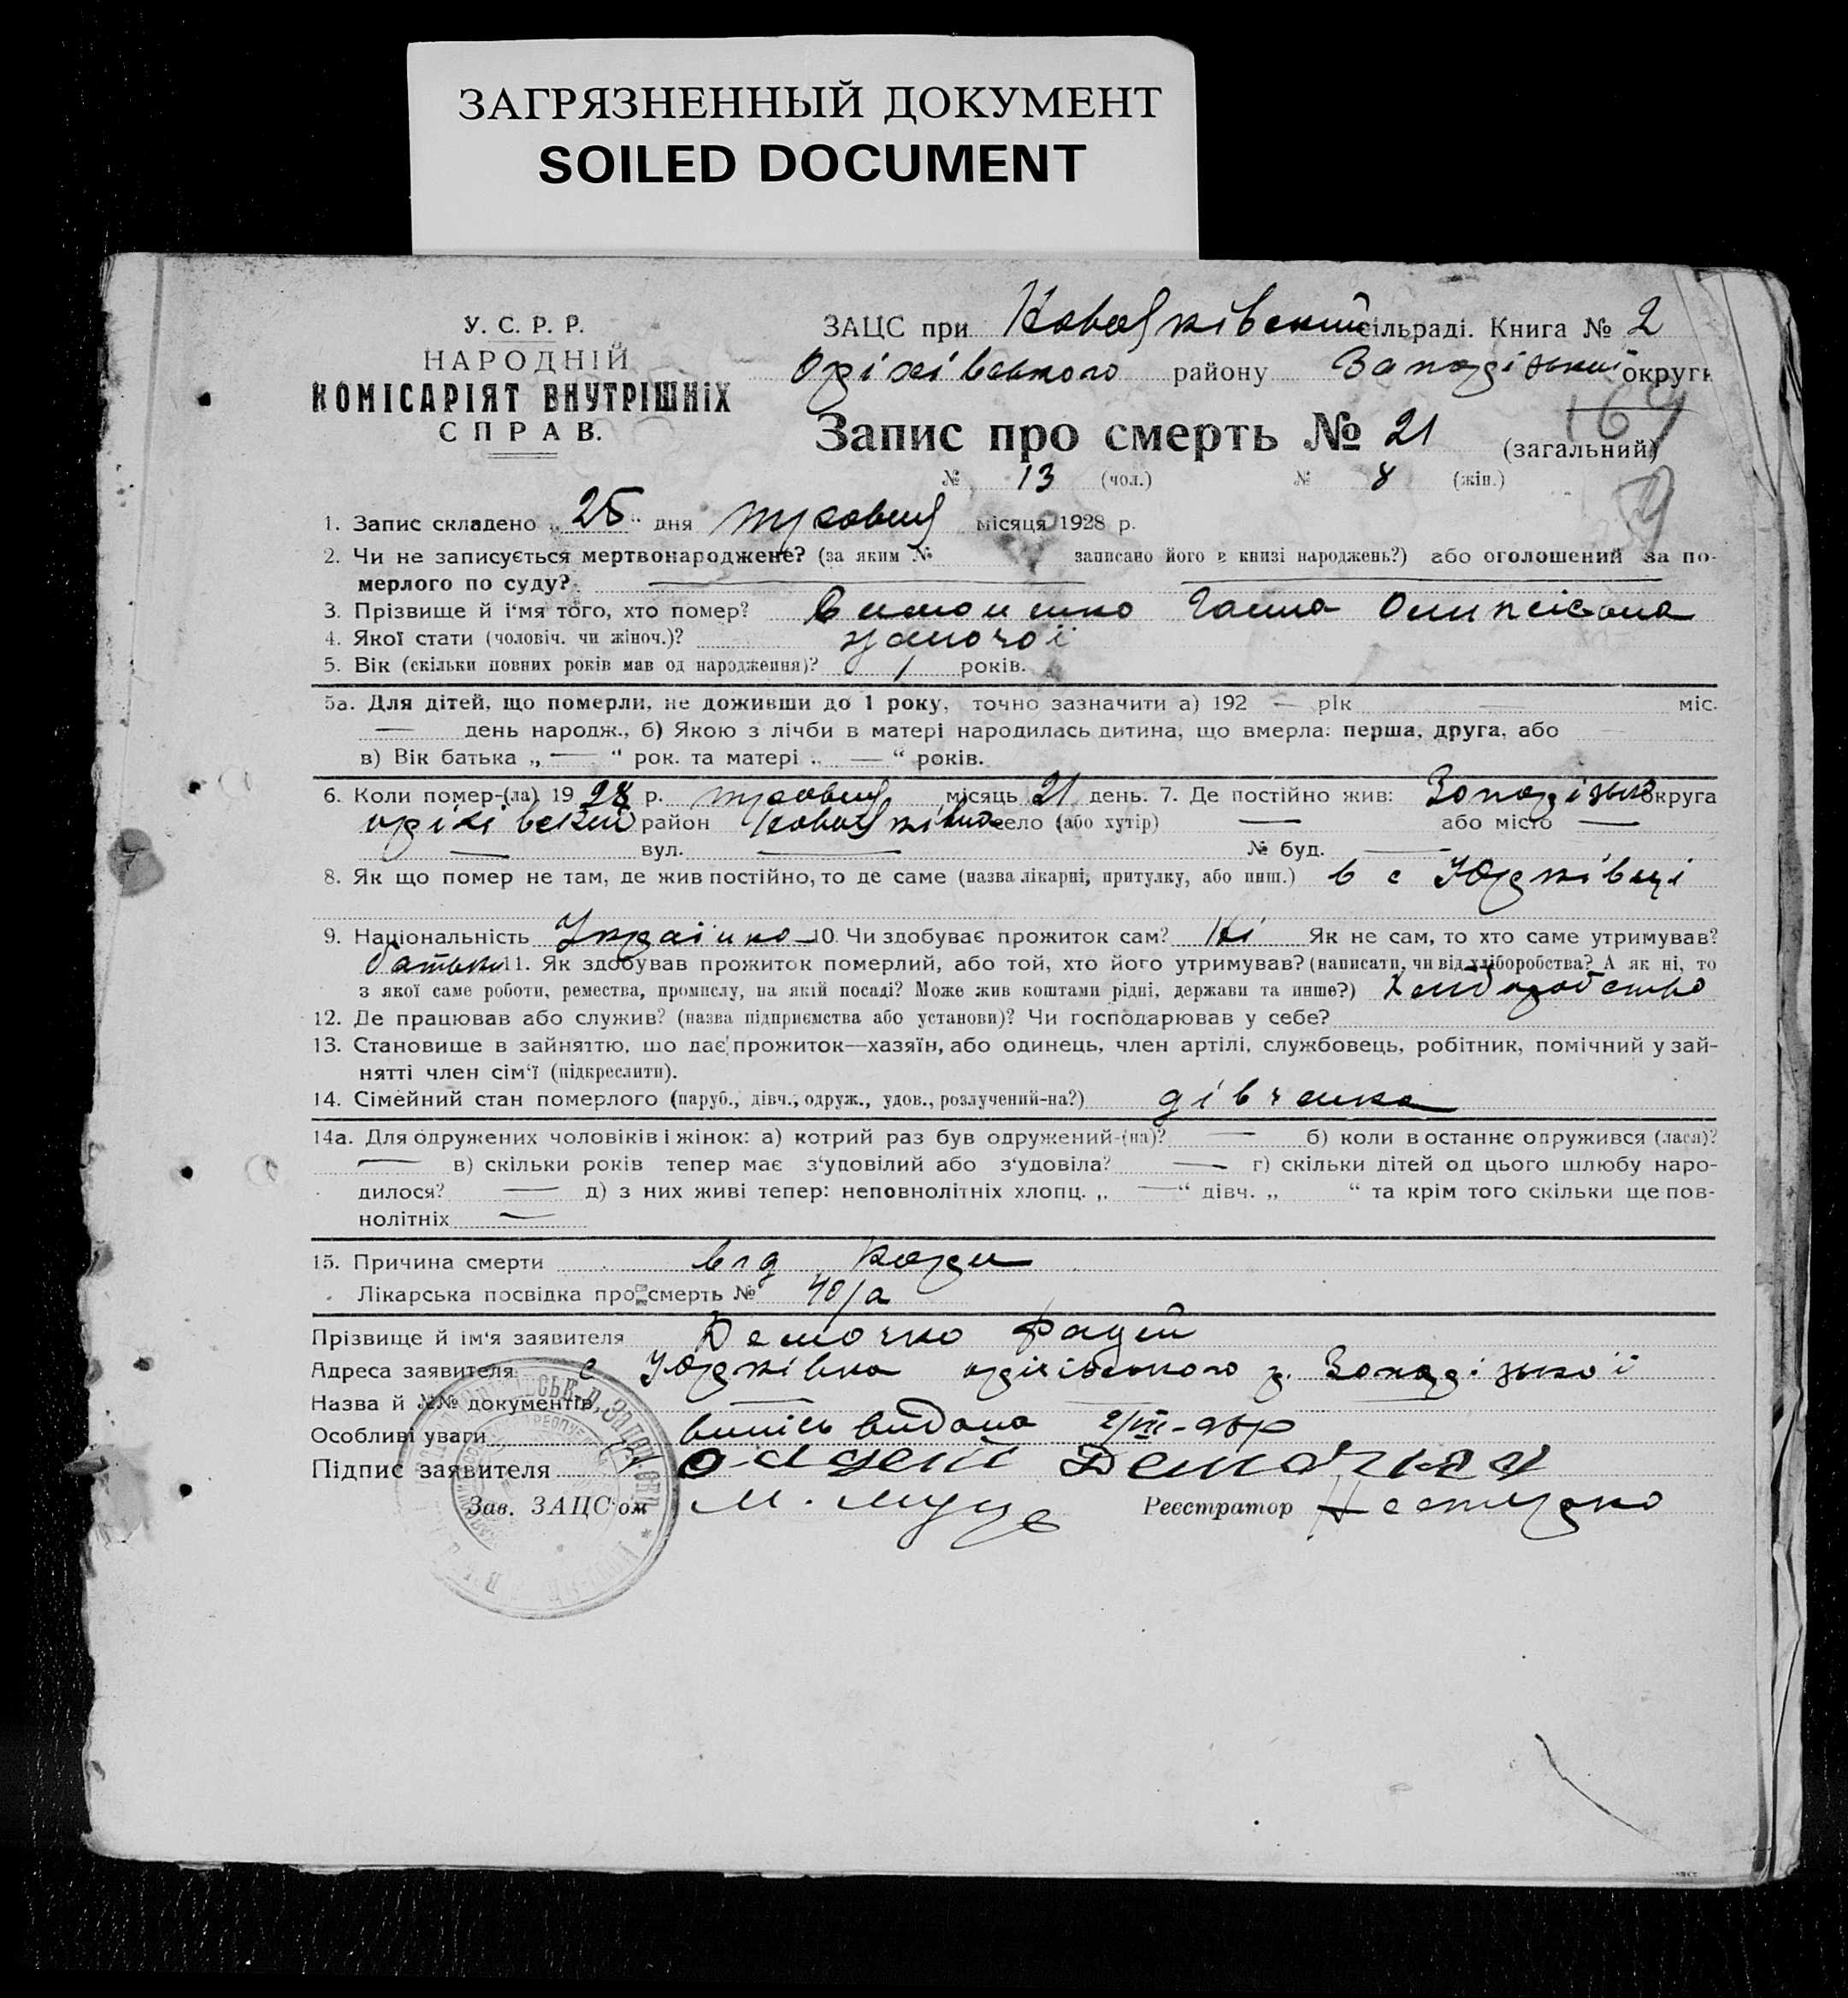 ЗАГРЯЗНЕННЫЙ ДОКУМЕНТ
SOILED DOCUMENT
У. С. Р. Р.
НАРОДНІЙ
КОМІСАРІЯТ ВНУТРІШНІХ
СПРАВ.
ЗАЦС при сільраді. Книга № 2
Оріхівського району Запорізький округи
169
Запис про смерть № 21 (загальний)
№ 13 (чол.) № 8 (жін.)
1. Запис складено „ 25 “ дня місяця 1928 р.
2. Чи не записується мертвонароджене? (за яким № записано його в книзі народжень?) або оголошений за по-
мерлого по суду?
3. Прізвище й і‘мя того, хто помер? Ганна
4. Якої стати (чоловіч. чи жіноч.)? жіночої
5. Вік (скільки повних років мав од народження)? 1 років.
5а. Для дітей, що померли, не доживши до 1 року, точно зазначити а) 192 — рік — міс.
— день народж., б) Якою з лічби в матері народилась дитина, що вмерла: перша, друга, або
в) Вік батька „ — “ рок. та матері „ — “ років.
6. Коли помер-(ла) 19 28 р. місяць 21 день. 7. Де постійно жив: Запорізька округа
оріхівський район село (або хутір) — або місто —
— вул. — № буд. —
8. Як що помер не там, де жив постійно, то де саме (назва лікарні, притулку, або инш.) в с Юрківці
9. Національність Українка 10. Чи здобуває прожиток сам? Ні Як не сам, то хто саме утримував?
батьки 11. Як здобував прожиток померлий, або той, хто його утримував? (написати, чи від хліборобства? А як ні, то
з якої саме роботи, ремества, промислу, на якій посаді? Може жив коштами рідні, держави та инше?) Хліборобство
12. Де працював або служив? (назва підприємства або установи)? Чи господарював у себе?
13. Становище в зайняттю, що дає прожиток—хазяїн, або одинець, член артілі, службовець, робітник, помічний у зай-
нятті член сім‘ї (підкреслити).
14. Сімейний стан померлого (паруб., дівч., одруж., удов., розлучений-на?) дівчинка
14а. Для одружених чоловіків і жінок: а) котрий раз був одружений-(на)? — б) коли востаннє одружився (лася)?
— в) скільки років тепер має з‘удовілий або з‘удовіла? — г) скільки дітей од цього шлюбу наро-
дилося? — д) з них живі тепер: неповнолітніх хлопц. „ — “ дівч. „ “ та крім того скільки ще пов-
нолітніх —
15. Причина смерти від кору
Лікарська посвідка про смерть № 40/а
Прізвище й ім‘я заявителя Фадей
Адреса заявителя с Юрківка оріхівського р. Запорізької
Назва й №№ документів, —
Особливі уваги випись видана 2/III-28р
Підпис заявителя
Зав. ЗАЦС‘ом Реєстратор Нестерко